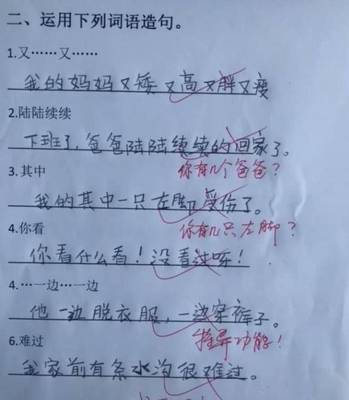 二、运用下列词语造句。
1.又……又……
我的妈妈又矮又高又胖又瘦
2.陆陆续续
下班了,爸爸陆陆续续的回家了。
3.其中
你有几个爸爸?
我的其中一只左脚受伤了。
4.你看
你有几只左脚?
你看什么看!没看过呀!
4.…一边…一边
他一边脱衣服,一边穿裤子。
6.难过
我家前有条水沟很难过。